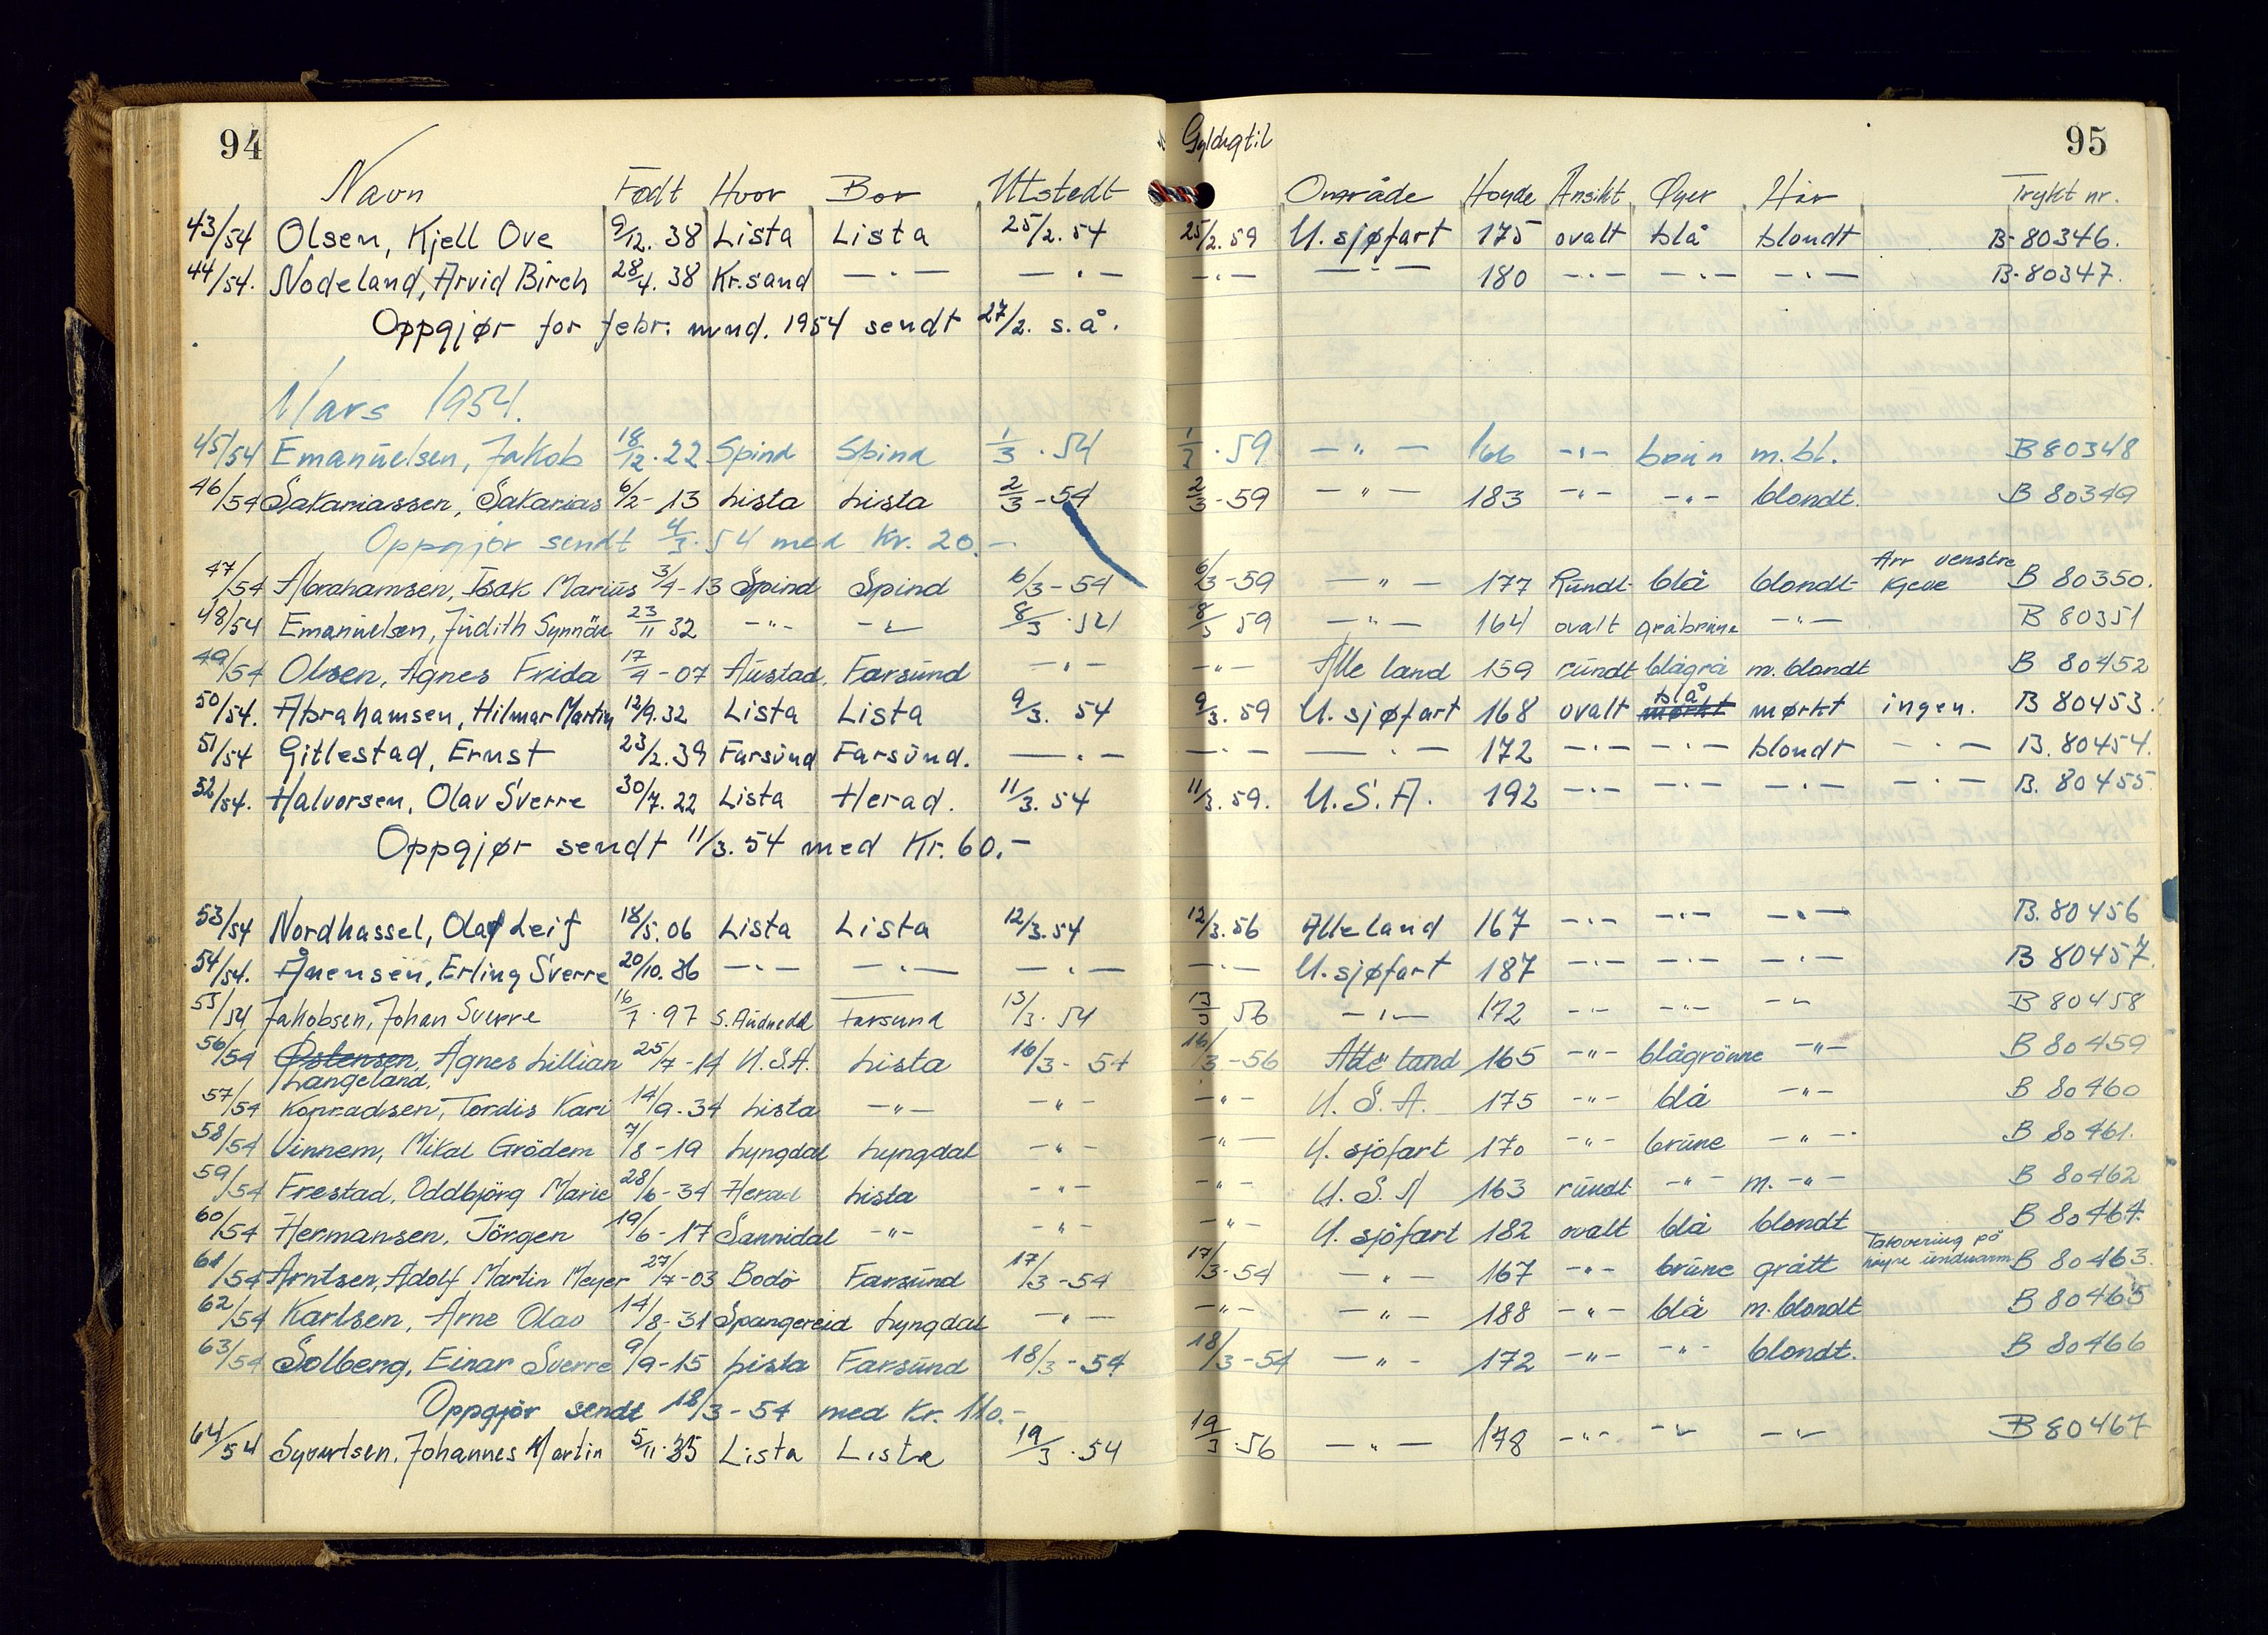 94 Gyldigtil 95
Navn Født Hvor Bor Utstedt Område Høyde Ansikt Øyer Hår Trykt nr.
43/54 Olsen, Kjell Ove 9/12. 38 Lista Lista 25/2. 54 25/2. 59 U. sjøfart 175 ovalt blå blondt B-80346.
44/54. Nodeland, Arvid Birch 28/4. 38 Kr.sand —"— —"— —"— —"— 180 —"— —"— —"— B-80347.
Oppgjør for febr. mnd. 1954 sendt 27/2. s.å.
Mars 1954.
45/54 Emanuelsen, Jakob 18/12. 22 Spind Spind 1/3. 54 1/3. 59 —"— 166 —"— brun m.bl. B 80348
46/54 Sakariassen, Sakarias 6/2- 13 Lista Lista 2/3 - 54 2/3 - 59 —"— 183 —"— —"— blondt. B 80349
Oppgjør sendt 4/3. 54 med Kr. 20.-
47/54 Abrahamsen, Isak Marius 3/4 - 13 Spind Spind 6/3 - 54 6/3 - 59 —"— 177 Rundt blå blondt Arr venstre kjeve B 80350.
48/54 Emanuelsen, Judith Synnöve 23/11 32 —"— —"— 8/3. 54 8/3 59 —"— 164 ovalt gråbrune —"— B 80351
49/54 Olsen, Agnes Frida 17/4 - 07 Austad, Farsund —"— —"— Alle land 159 rundt blågrå m. blondt B 80452
50/54. Abrahamsen, Hilmar Martin 12/9. 32 Lista Lista 9/3. 54 9/3. 59 U. sjøfart 168 ovalt mørkt blå mørkt ingen. B 80453.
51/54 Gitlestad, Ernst 23/2. 39 Farsund Farsund. —"— —"— —"— 172 —"— —"— blondt —"— B. 80454.
52/54. Halvorsen, Olav Sverre 30/7. 22 Lista Herad. 11/3. 54 11/3. 59. U.S.A. 192 —"— —"— —"— —"— B. 80455
Oppgjør sendt 11/3. 54 med Kr. 60.-
53/54 Nordhassel, Olaf Leif 18/5. 06 Lista Lista 12/3. 54 12/3. 56 Alle land 167 —"— —"— —"— B. 80456
54/54. Ånensen, Erling Sverre 20/10. 36 —"— —"— —"— —"— U. sjøfart 187 —"— —"— —"— B 80457.
55/54 Jakobsen, Johan Sverre 16/7. 97 S. Audnedal Farsund 13/3. 54 13/3 56 —"— 172 —"— —"— —"— B 80458
56/54 Østensen, Agnes Lillian 25/7 - 14 U.S.A. Lista 16/3 - 54 16/3 - 56 Alle land 165 —"— blågrönne —"— B 80459
Langeland.
57/54 Konradsen, Tordis Kari 14/9 - 34 Lista —"— —"— —"— U.S.A. 175 —"— blå —"— B 80460
58/54 Vinnem, Mikal Grödem 7/8 - 19 Lyngdal Lyngdal —"— —"— U. sjöfart 170 —"— brune —"— B 80461.
59/54 Frestad, Oddbjörg Marie 28/6 - 34 Herad Lista —"— —"— U.S.A 163 rundt —"— m. —"— B 80462
60/54 Hermansen, Jörgen 19/6 - 17 Sannidal —"— —"— —"— U. sjöfart 182 ovalt blå blondt B 80464.
61/54 Arntsen, Adolf Martin Meyer 27/7 - 03 Bodö Farsund 17/3 - 54 17/3 - 54 —"— 167 —"— brune grått Tatovering på høyre underarm B 80463.
62/54 Karlsen, Arne Olav 14/8 - 31 Spangereid Lyngdal —"— —"— —"— 188 —"— blå m. blondt B 80465
63/54 Solberg, Einar Sverre 9/9 - 15 Lista Farsund 18/3 - 54 18/3 - 54 —"— 172 —"— —"— blondt. B 80466
Oppgjör sendt 18/3 - 54 med Kr. 110.-
64/54 Syvertsen, Johannes Martin 5/11. 35 Lista Lista 19/3. 54 19/3. 56 —"— 178 —"— —"— —"— B 80467